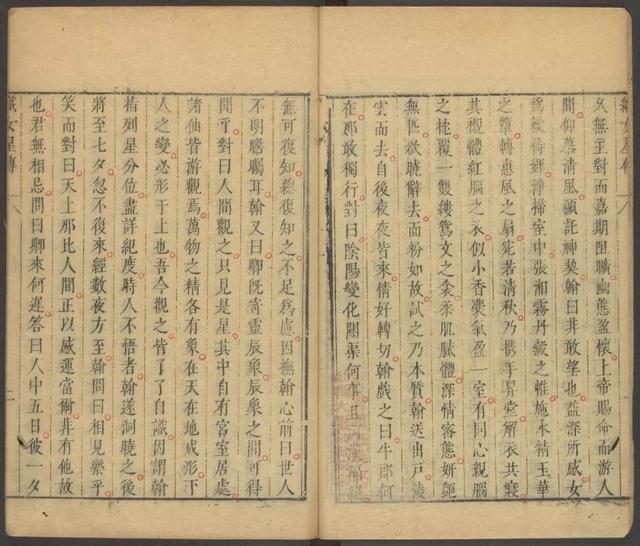 織女星傳
久無主對而嘉期阻曠幽態盈懷上帝賜命而游人
間仰慕清風願託神契翰曰非敢望也益深所感女
爲敕侍婢淨掃室中張湘霧丹縠之帷施水精玉華
之簟轉惠風之扇宛若清秋乃攜手昇堂解衣共寢
其襯體紅腦之衣似小香囊氣盈一室有同心親腦
之枕覆一雙縷鴛文之衾柔肌膩體深情密態妍艷
無匹欲曉辭去面粉如故試之乃本質翰送出戶凌
雲而去自後夜夜皆來情好轉切翰戲之曰牛郎何
在那敢獨行對曰陰陽變化關渠何事且河漢隔絕
無可復知縱復知之不足爲慮因撫翰心前曰世人
不明瞻矚耳翰又曰卿旣寄靈辰象辰象之間可得
聞乎對曰人間觀之只見是星其中自有宮室居處
諸仙皆游觀焉萬物之精各有象在天在地成形下
人之變必形于上也吾今觀之皆了了自識因謂翰
指列星分位盡詳紀度時人不悟者翰遂洞曉之後
將至七夕忽不復來經數夜方至翰問曰相見樂乎
笑而對曰天上那比人間正以感運當爾非有他故
也君無相忌問曰卿來何遲答曰人中五日彼一夕
織女星傳
二